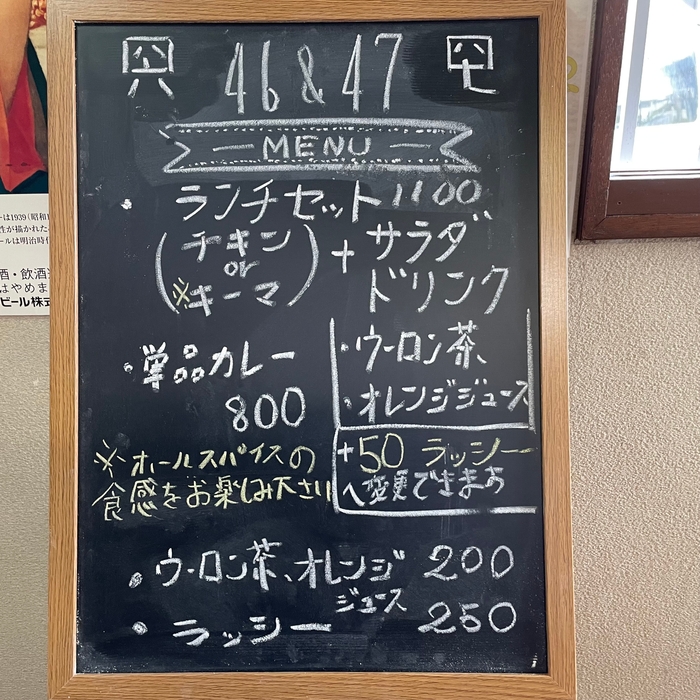 46 & 47
MENU
・ランチセット 1100
(チキン or ※キーマ) + サラダ ドリンク
・ウーロン茶、
・オレンジジュース
+50 ラッシー
へ変更できます
・単品カレー
800
※ホールスパイスの
食感をお楽しみ下さい
・ウーロン茶、オレンジジュース 200
・ラッシー 250
ーは1939(昭和
酒・飲酒
はやめま
ビール株式